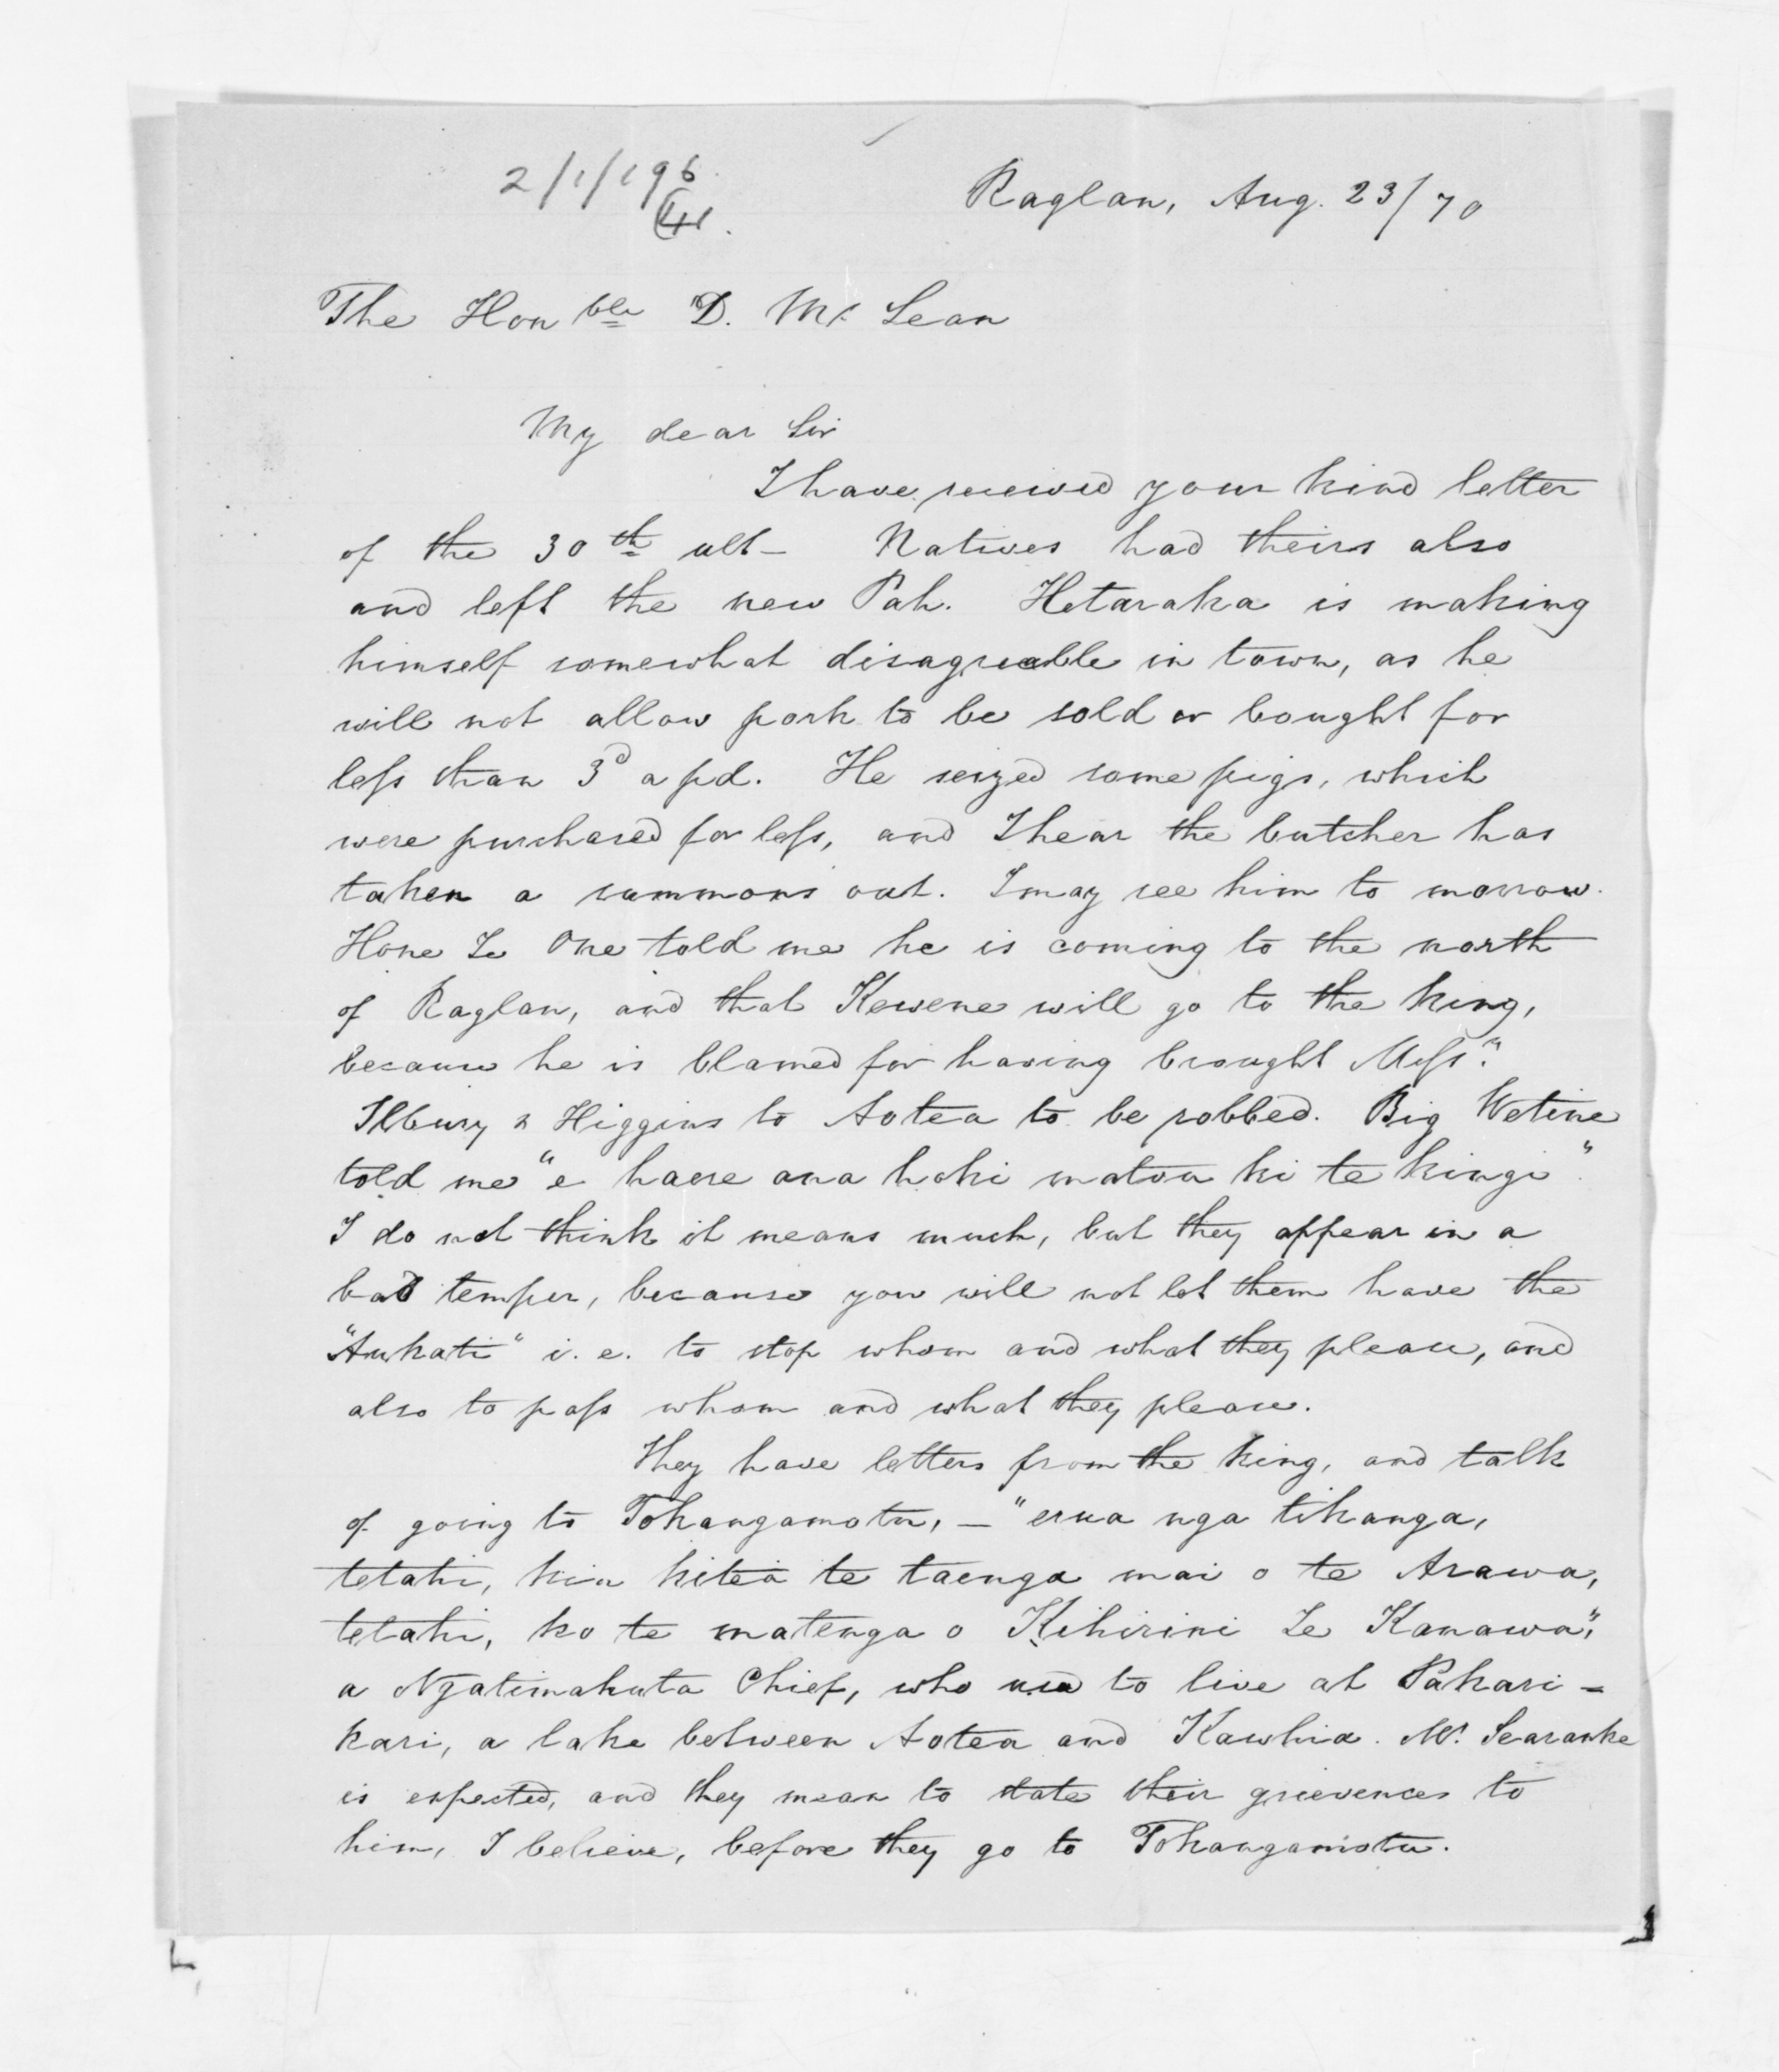 2/1/196
Raglan, Aug. 23/70
The Honble D. McLean
My dear Sir
I have received your kind letter
of the 30th ult – Natives had theirs also
and left the new Pah. Hetaraka is making
himself somewhat disagreeable in town, as he
will not allow pork to be sold or bought for
less than 3d a pd. He seized some pigs, which
were purchased for less, and I hear the butcher has
taken a summons out. I may see him to morrow.
Hone Te One told me he is coming to the north
of Raglan, and that Kewene will go to the King,
because he is blamed for having brought Messrs
Ilbury & Higgins to Aotea to be robbed. Big Wetine
told me "e haere ana hoki matou ki te kingi".
I do not think it means much, but they appear in a
bad temper, because you will not let them have the
"Aukati" i.e. to stop whom and what they please, and
also to pass whom and what they please.
They have letters from the King, and talk
of going to Tokangamotu, – "erua nga tikanga,
tetahi, kia kitea te taenga mai o te Arawa,
tetahi, ko te matenga o Kihirini Te Kanawa",
a Ngatimahuta Chief, who used to live at Pakari =
kari, a lake between Aotea and Kawhia. Mr. Searanke
is expected, and they mean to state their grievences to
him, I believe, before they go to Tokangamotu.